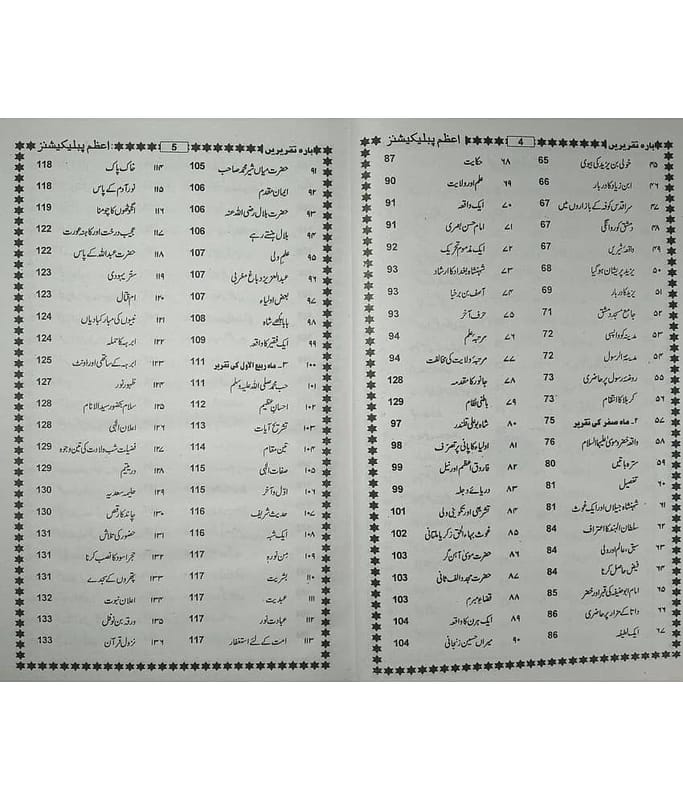 بارہ تقریریں 4 اعظم پبلیکیشنز
۴۵ خولی بن یزید کی بیوی 65
۴۶ ابن زیاد کا دربار 66
۴۷ سر اقدس کوفہ کے بازاروں میں 67
۴۸ دمشق کو روانگی 67
۴۹ واقعہ شیریں 67
۵۰ یزید پریشان ہوگیا 68
۵۱ یزید کا دربار 69
۵۲ جامع مسجد دمشق 71
۵۳ مدینہ کو واپسی 72
۵۴ مدینۃ الرسول 72
۵۵ روضۂ رسول پر حاضری 73
۵۶ کربلا کا انتقام 73
۵۷ ۲۔ ماہ صفر کی تقریر 75
۵۸ واقعہ خضر و موسیٰ علیہما السلام 76
۵۹ ستر ہاتھیں 80
۶۰ تفصیل 81
۶۱ شہنشاہ جیلاں اور ایک غوث 81
۶۲ سلطان الہند کا اعتراف 84
۶۳ سبق، عالم اور ولی 84
۶۴ فیض حاصل کرنا 84
۶۵ امام ابو حنیفہ کی قبر اور خضر 85
۶۶ داتا کے مزار پر حاضری 86
۶۷ ایک لطیفہ 86
۶۸ حکایت 87
۶۹ علم اور ولایت 90
۷۰ ایک واقعہ 91
۷۱ امام حسن بصری 91
۷۲ ایک مذموم تحریک 92
۷۳ شہنشاہ بغداد کا ارشاد 93
۷۴ آصف بن برخیا 93
۷۵ حرف آخر 93
۷۶ مرتبہ علم 94
۷۷ مرتبۂ ولایت کی مخالفت 94
۷۸ جانور کا مقدمہ 128
۷۹ باطنی نظام 129
۸۰ شاہ بو علی قلندر 97
۸۱ اولیاء کا پانی پر تصرف 98
۸۲ فاروق اعظم اور نیل 99
۸۳ دریائے دجلہ 99
۸۴ تشریعی اور تکوینی ولی 101
۸۵ غوث بہاء الحق زکریا ملتانی 102
۸۶ حضرت موسیٰ آہن گر 103
۸۷ حضرت مجدد الف ثانی 103
۸۸ قضاء مبرم 103
۸۹ ایک ہرن کا واقعہ 104
۹۰ میراں حسین زنجانی 104
بارہ تقریریں 5 اعظم پبلیکیشنز
۹۱ حضرت میاں شیر محمد صاحب 105
۹۲ ایمان مقدم 106
۹۳ حضرت بلال رضی اللہ عنہ 106
۹۴ بلال ہنستے رہے 106
۹۵ علم ولی 107
۹۶ عبدالعزیز دباغ مغربی 107
۹۷ بعض اولیاء 107
۹۸ بابا بلھے شاہ 108
۹۹ ایک فقیر کا واقعہ 109
۱۰۰ ۳۔ ماہ ربیع الاول کی تقریر 111
۱۰۱ حب محمد صلی اللہ علیہ وسلم 111
۱۰۲ احسان عظیم 112
۱۰۳ تشریح آیات 113
۱۰۴ تین مقام 114
۱۰۵ صفات الٰہی 115
۱۰۶ اول و آخر 115
۱۰۷ حدیث شریف 116
۱۰۸ ایک شبہ 116
۱۰۹ من نورہ 117
۱۱۰ بشریت 117
۱۱۱ عبدیت 117
۱۱۲ عبادت نور 117
۱۱۳ امت کے لئے استغفار 117
۱۱۴ خاک پاک 118
۱۱۵ نور آدم کے پاس 118
۱۱۶ انگوٹھوں کا چومنا 119
۱۱۷ عجیب درخت اور کاہنہ عورت 122
۱۱۸ حضرت عبداللہ کے پاس 122
۱۱۹ ستر یہودی 123
۱۲۰ ام قتال 123
۱۲۱ نبیوں کی مبارکبادیاں 124
۱۲۲ ابرہہ کا حملہ 124
۱۲۳ ابرہہ کے ساتھی اور اونٹ 125
۱۲۴ ظہور نور 127
۱۲۵ سلام بحضور سید الانام 128
۱۲۶ اعلان الٰہی 128
۱۲۷ فضیلت شب ولادت کی تین وجوہ 129
۱۲۸ در یتیم 129
۱۲۹ حلیمہ سعدیہ 130
۱۳۰ چاند کا رقص 130
۱۳۱ حضور کی تلاش 131
۱۳۲ حجر اسود کا نصب کرنا 131
۱۳۳ پتھروں کے سجدے 131
۱۳۴ اعلان نبوت 132
۱۳۵ ورقہ بن نوفل 133
۱۳۶ نزول قرآن 133